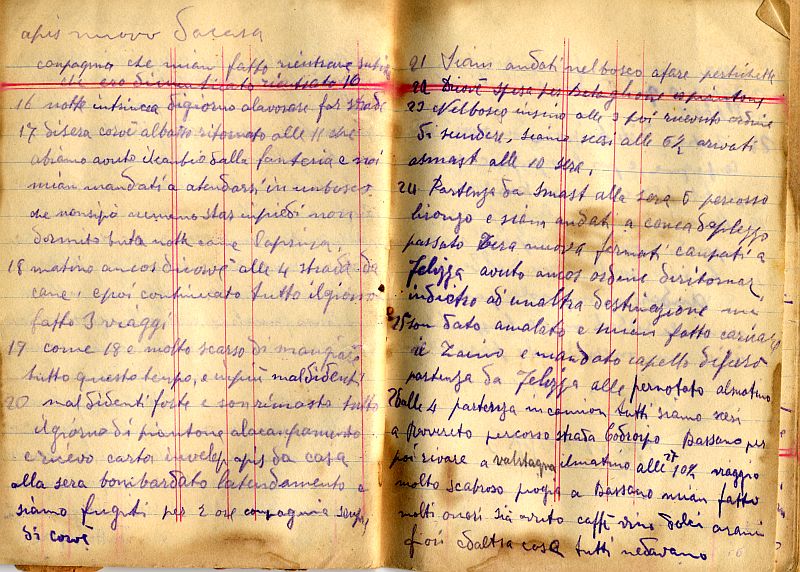 apis nuovo da casa
compagnia che mian fatto rientrare subito
che ero dimenticato rientrato 16
16 notte intrincea di giorno alavorare far strade
17 disera corvè albatto ritornato alle 11 che
abiamo avuto il cambio dalla fanteria e noi
mian mandati a atendarsi in un bosco
che nonsipò nemeno star inpiedi non
dormito tuta notte cane
18 matino ancor di corvè alle 4 strada da
cane, epoi continuato tutto ilgiorno
fatto 3 viaggi
19 come 18 e molto scarso di mangiare
tutto questo tempo, e inpiù mal didenti
20 mal didenti forte e son rimasto tutto
ilgiorno di piantone alacanpamento
e ricevo carta invelop apis da casa
alla sera bonibardato latendamento e
siamo fugiti per 2 ore compagnia sempre
di corvè
21 Siam andati nel bosco afare pertichette
22 Dicovè
23 Nelbosco insino alle 3 poi ricevuto ordine
di sendere, siamo scesi alle 6½ arivati
asmast alle 10 sera,
24 Partenza da Smast alla sera 5 percosso
lisongo e siam andati a conca daplezzo
passato Zera nuova fermati canpati a
Jelizza avuto ancor ordine diritornar
indietro ad unaltra destinazione mi
25 son dato amalato e mian fatto caricare
il Zaino e mandato capello
partenza da Jelizza alle pernotato almatino
26 alle 4 partenza incamion tutti siamo scesi
a Rovereto percosso strada Codroipo Bassano per
poi rivare a valstagna ilmatino alle 27 10½ viaggio
molto scabroso a Bassano mian fatto
molti onori sià avuto caffè vino dolci arani
fiori edaltra cosa tutti nedavano